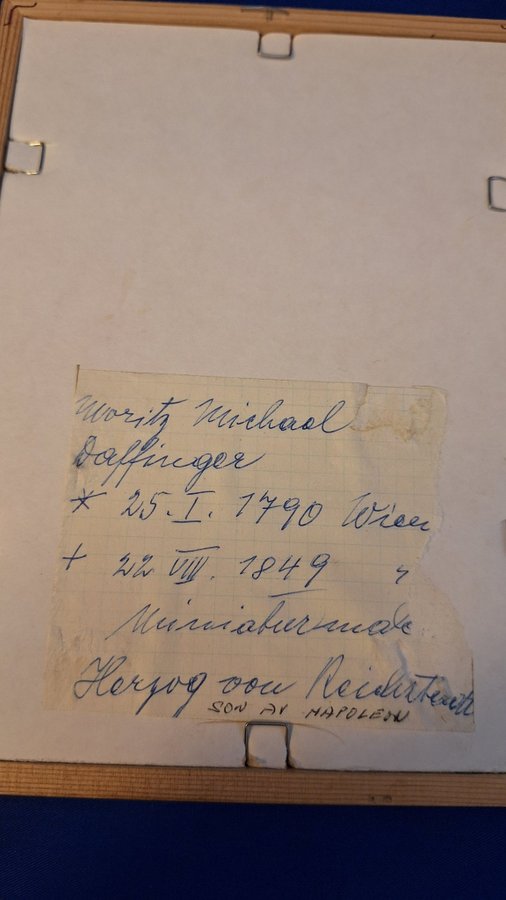 Moritz Michael
Daffinger
* 25. I. 1790 Wien
+ 22 VIII. 1849 "
Miniaturmale
Herzog von Reichstadt
SON AV NAPOLEON